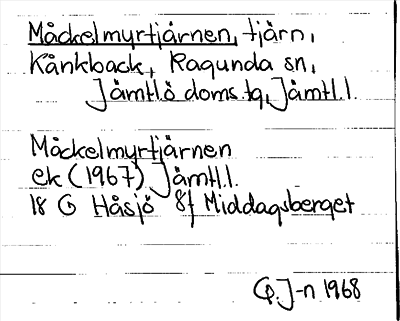 Måckelmyrtjärnen, tjärn,
Kånkback, Ragunda sn,
Jämtl ö doms.tg, Jämtl.l.
Måckelmyrtjärnen
ek (1967) Jämtl.l.
18 G Håsjö 8f Middagsberget
G.J-n 1968